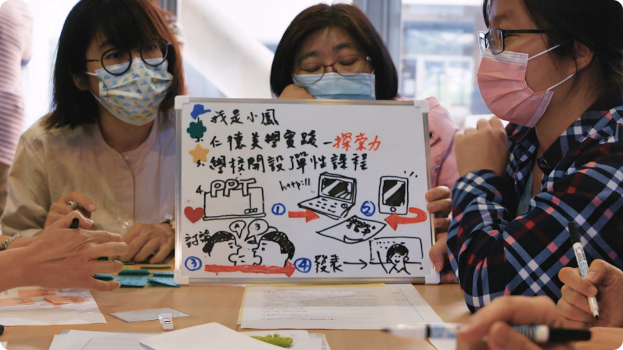 我是小鳳
仁德美學實踐-探索力
3. 學校開設彈性課程
4. PPT
http://
① ②
討論
③ ④ 發表